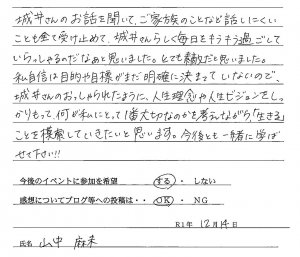 城井さんのお話を聞いて、ご家族のことなど話しにくい
ことも全て受け止めて、城井さんらしく毎日をキラキラ過ごして
いらっしゃるのだなあと思いました。とても素敵だと思いました。
私自信は目的や目標がまだ明確に決まっていないので、
城井さんのおっしゃられたように、人生理念や人生ビジョンをしっ
かりもって、何が私にとって1番大切なのかを考えながら「生きる」
ことを模索していきたいと思います。今後とも一緒に学ば
せて下さい!!
今後のイベントに参加を希望 する ・ しない
感想についてブログ等への投稿は・・ OK ・ NG
R1年 12月14日
氏名 山中 麻未